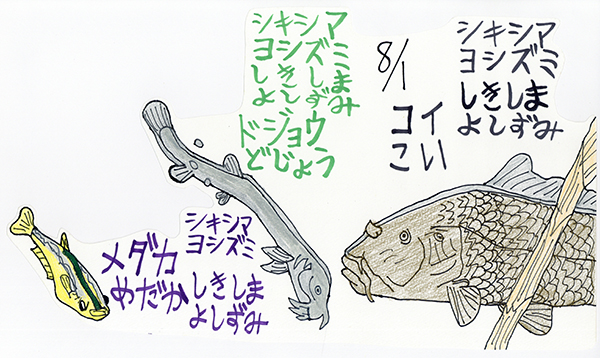 シキシマ
ヨシズミ
しきしま
よしずみ
ドジョウ
どじょう
8/1
シキシマ
ヨシズミ
しきしま
よしずみ
コイ
こい
シキシマ
ヨシズミ
しきしま
よしずみ
メダカ
めだか